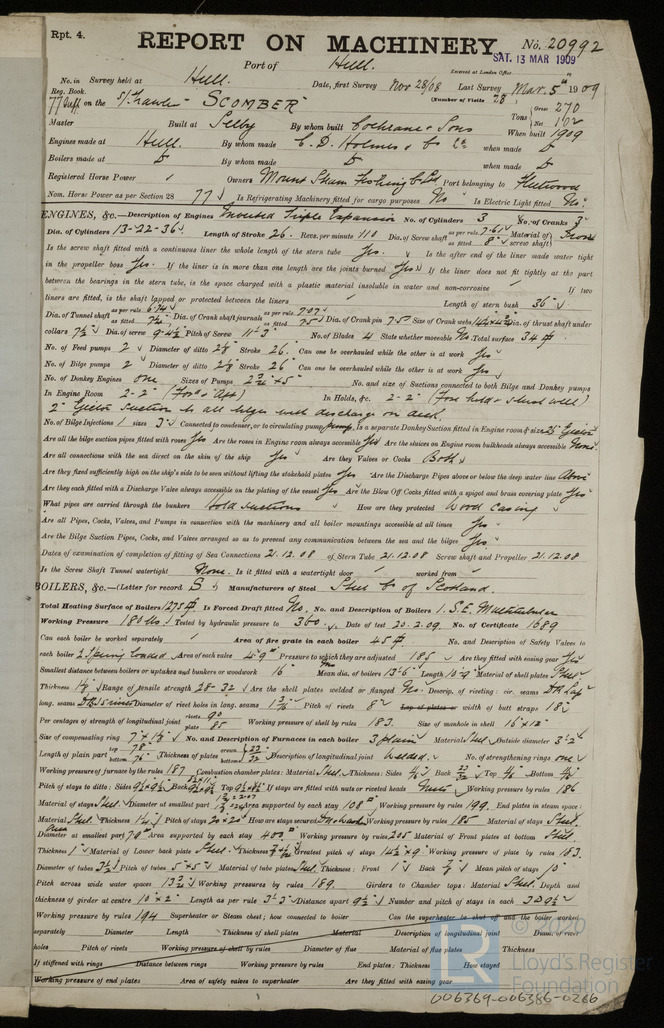 Rpt. 4.
REPORT ON MACHINERY. No. 20992
Port of Hull. SAT. 13 MAR 1909
Received at London Office
No. in Survey held at Hull. Date, first Survey Nov 28/08 Last Survey Mar. 5th 1909
Reg. Book. (Number of Visits 28
77 Suff. on the S/Trawler SCOMBER Tons Gross 270 Net 102
Master Built at Selby By whom built Cochrane & Sons When built 1909
Engines made at Hull. By whom made C. D. Holmes & Co Ltd when made
Boilers made at By whom made when made
Registered Horse Power Owners Mount Steam Fishing Co Ltd Port belonging to Fleetwood
Nom. Horse Power as per Section 28 77 Is Refrigerating Machinery fitted for cargo purposes No Is Electric Light fitted No.
ENGINES, &c.—Description of Engines Inverted Triple Expansion No. of Cylinders 3 No. of Cranks 3
Dia. of Cylinders 13-22-36 Length of Stroke 26. Revs. per minute 110 Dia. of Screw shaft as per rule 7.61 as fitted 8" Material of screw shaft Iron
Is the screw shaft fitted with a continuous liner the whole length of the stern tube Yes. Is the after end of the liner made water tight
in the propeller boss Yes. If the liner is in more than one length are the joints burned Yes If the liner does not fit tightly at the part
between the bearings in the stern tube, is the space charged with a plastic material insoluble in water and non-corrosive If two
liners are fitted, is the shaft lapped or protected between the liners Length of stern bush 36"
Dia. of Tunnel shaft as per rule 6.74 as fitted 7¼ Dia. of Crank shaft journals as per rule 7.07 as fitted 7.5 Dia. of Crank pin 7.5 Size of Crank webs Dia. of thrust shaft under
collars 7½ Dia. of screw 9-4½ Pitch of Screw 11'3" No. of Blades 4 State whether moveable No. Total surface 34
No. of Feed pumps 2 Diameter of ditto Stroke 26. Can one be overhauled while the other is at work Yes
No. of Bilge pumps 2 Diameter of ditto Stroke 26" Can one be overhauled while the other is at work Yes
No. of Donkey Engines One Sizes of Pumps No. and size of Suctions connected to both Bilge and Donkey pumps
In Engine Room 2-2" (For'd & Aft) In Holds, &c. 2-2" (Fore hold & shoot well)
2" Ejector Suction to all bilges with discharge on deck
No. of Bilge Injections 1 sizes 3" Connected to condenser, or to circulating pump pump. Is a separate Donkey Suction fitted in Engine room & size 2½ Ejector
Are all the bilge suction pipes fitted with roses Yes Are the roses in Engine room always accessible Yes Are the sluices on Engine room bulkheads always accessible None.
Are all connections with the sea direct on the skin of the ship Yes Are they Valves or Cocks Both
Are they fixed sufficiently high on the ship's side to be seen without lifting the stokehold plates Yes Are the Discharge Pipes above or below the deep water line Above
Are they each fitted with a Discharge Valve always accessible on the plating of the vessel Yes Are the Blow Off Cocks fitted with a spigot and brass covering plate Yes
What pipes are carried through the bunkers Hold suctions How are they protected Wood casing
Are all Pipes, Cocks, Valves, and Pumps in connection with the machinery and all boiler mountings accessible at all times Yes
Are the Bilge Suction Pipes, Cocks, and Valves arranged so as to prevent any communication between the sea and the bilges Yes.
Dates of examination of completion of fitting of Sea Connections 21.12.08 of Stern Tube 21.12.08 Screw shaft and Propeller 21.12.08
Is the Screw Shaft Tunnel watertight None. Is it fitted with a watertight door worked from
BOILERS, &c.—(Letter for record S) Manufacturers of Steel Steel Co of Scotland.
Total Heating Surface of Boilers 1275 Is Forced Draft fitted No. No. and Description of Boilers 1. S.E. Multitubular
Working Pressure 180 lbs. Tested by hydraulic pressure to 360. Date of test 20.2.09. No. of Certificate 1689
Can each boiler be worked separately Area of fire grate in each boiler 45 No. and Description of Safety Valves to
each boiler 2 Spring loaded Area of each valve 4.9" Pressure to which they are adjusted 185 Are they fitted with easing gear Yes
Smallest distance between boilers or uptakes and bunkers or woodwork 16" Mean dia. of boilers 13'6" Length 10'9" Material of shell plates Steel
Thickness Range of tensile strength 28-32 Are the shell plates welded or flanged No. Descrip. of riveting: cir. seams D.R. Lap
long. seams Diameter of rivet holes in long. seams Pitch of rivets 8" Lap of plates or width of butt straps 18"
Per centages of strength of longitudinal joint rivets 90 plate 85 Working pressure of shell by rules 183. Size of manhole in shell 16" x 12"
Size of compensating ring No. and Description of Furnaces in each boiler 3 plain Material Steel Outside diameter 3'2"
Length of plain part top 78" bottom 76" Thickness of plates crown bottom Description of longitudinal joint Welded. No. of strengthening rings one
Working pressure of furnace by the rules 187 Combustion chamber plates: Material Steel Thickness: Sides Back Top Bottom
Pitch of stays to ditto: Sides Back Top If stays are fitted with nuts or riveted heads Nuts Working pressure by rules 186
Material of stays Steel Diameter at smallest part Area supported by each stay 108 Working pressure by rules 199. End plates in steam space:
Material Steel Thickness Pitch of stays 20x20 How are stays secured Working pressure by rules 185 Material of stays Steel.
Diameter at smallest part Area supported by each stay 400 Working pressure by rules 205 Material of Front plates at bottom Steel
Thickness 1" Material of Lower back plate Steel Thickness Greatest pitch of stays 14½ x 9" Working pressure of plate by rules 183.
Diameter of tubes 3½ Pitch of tubes 5" x 5" Material of tube plates Steel Thickness: Front 1" Back Mean pitch of stays 10"
Pitch across wide water spaces Working pressures by rules 189. Girders to Chamber tops: Material Steel Depth and
thickness of girder at centre 10" x 2" Length as per rule 3'3" Distance apart 9½ Number and pitch of stays in each 3 @ 9½
Working pressure by rules 194 Superheater or Steam chest; how connected to boiler Can the superheater be shut off and the boiler worked
separately Diameter Length Thickness of shell plates Material Description of longitudinal joint Diam. of rivet
holes Pitch of rivets Working pressure of shell by rules Diameter of flue Material of flue plates Thickness
If stiffened with rings Distance between rings Working pressure by rules End plates: Thickness How stayed
Working pressure of end plates Area of safety valves to superheater Are they fitted with easing gear
© 2020
Lloyd's Register
Foundation
006369-006386-0266